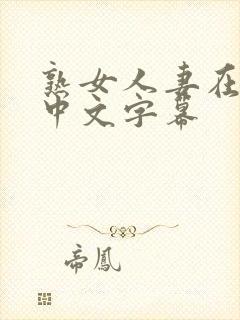 熟女人妻在
中文字幕
帝鳳